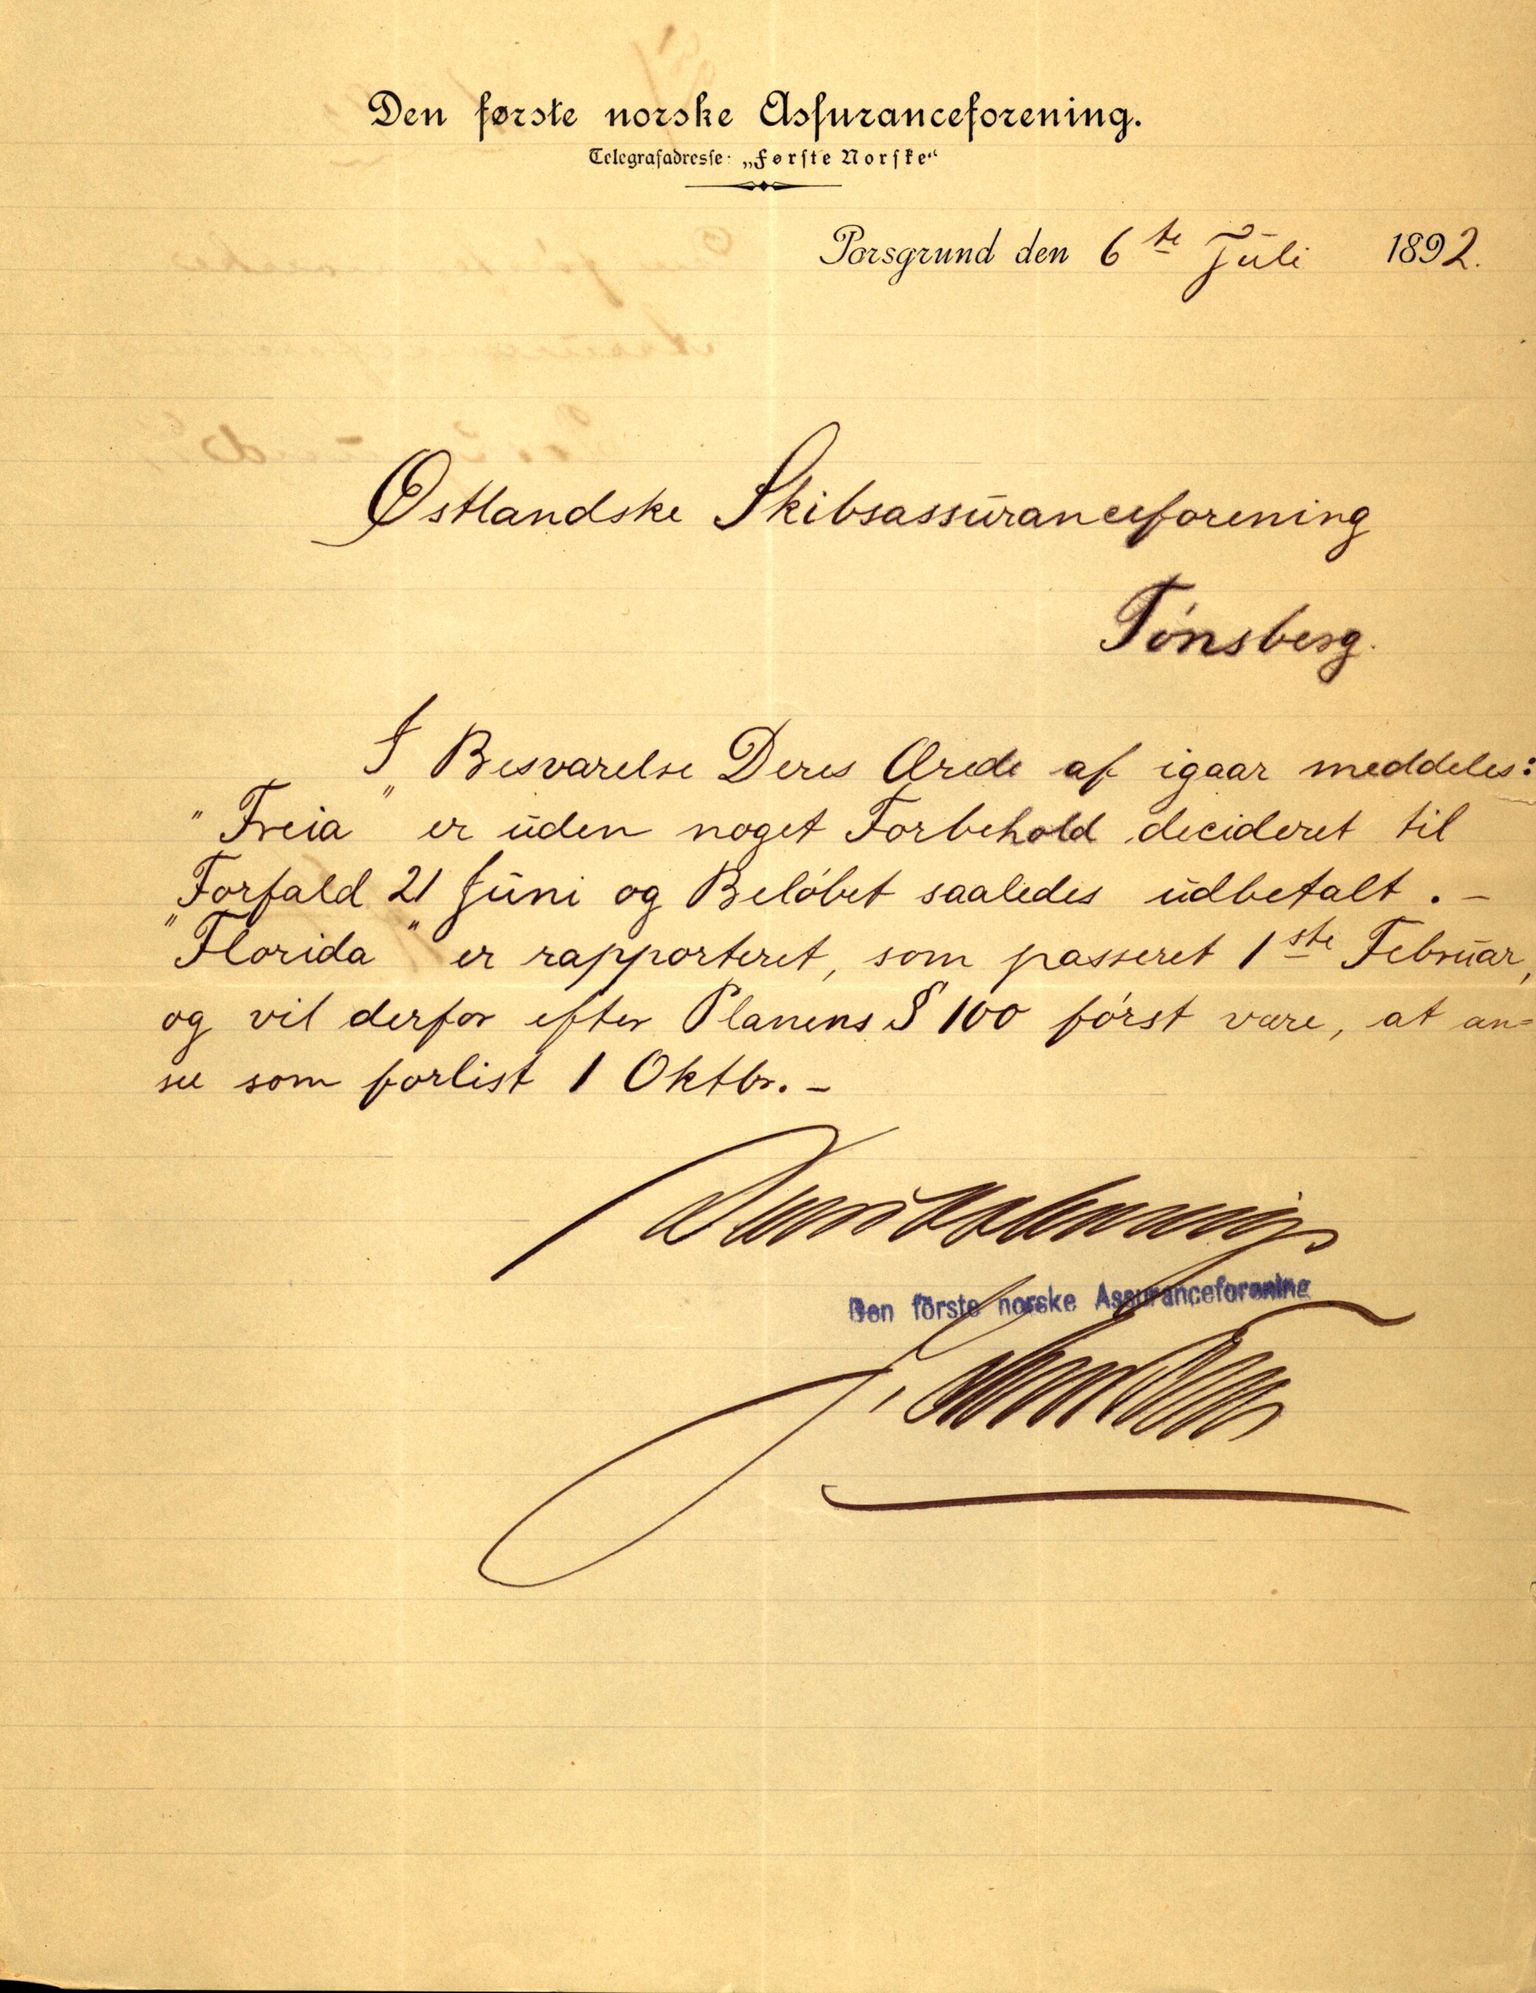 Den første norske Assuranceforening.
Telegrafadresse: „Første Norske“
Porsgrund den 6te Juli 1892.
Østlandske Skibsassuranceforening
Tönsberg.
I Besvarelse Deres Ærede af igaar meddeles:
"Freia" er uden noget Forbehold decideret til
Forfald 21 Juni og Belöbet saaledes udbetalt. –
"Florida" er rapporteret, som passeret 1ste Februar,
og vil derfor efter Planens § 100 först være, at an=
se som forlist 1 Oktbr. –
Den förste norske Assuranceforening